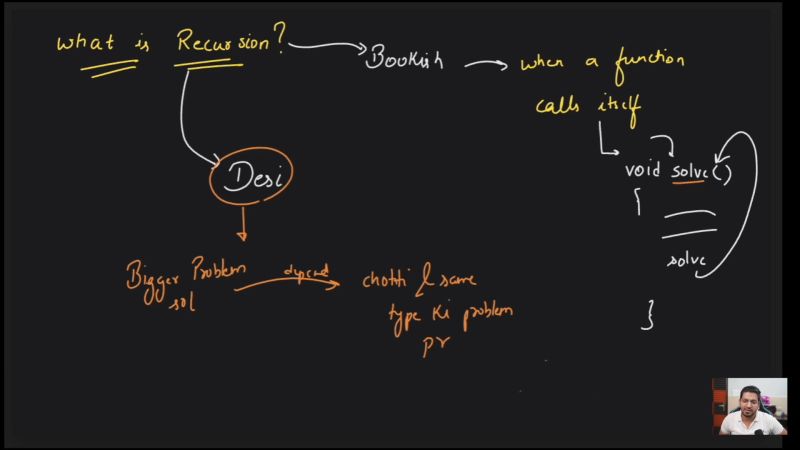 What is Recursion?
Bookish
when a function
calls itself
void solve()
{
solve
}
Desi
Bigger Problem
sol
depend
chotti & same
type ki problem
pr